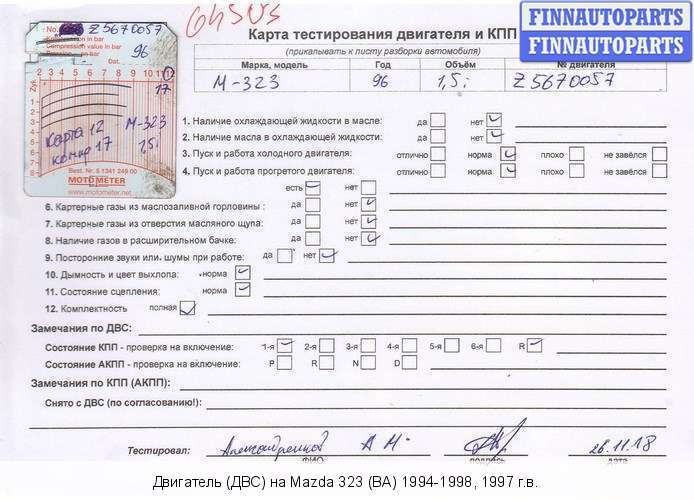 04505
FINNAUTOPARTS
FINNAUTOPARTS
No. Z5670057
Compression in bar
Compression value in bar
Pression en bar
96
Dat.
2 3 4 5 6 7 8 9 10 11 12
Zyl.
17
1
2
3
4
5
6
7
8
Карта 12 М-323
комп 17 1,5i
Best. Nr. 5 1341 249 00
MOTOMETER
www.motometer.net
Карта тестирования двигателя и КПП
(прикалывать к листу разборки автомобиля)
Марка, модель Год Объём № двигателя
М-323 96 1,5i Z5670057
1. Наличие охлаждающей жидкости в масле: да нет
2. Наличие масла в охлаждающей жидкости: да нет
3. Пуск и работа холодного двигателя: отлично норма плохо не завёлся
4. Пуск и работа прогретого двигателя: отлично норма плохо не завёлся
есть нет
6. Картерные газы из маслозаливной горловины : да нет
7. Картерные газы из отверстия масляного щупа: да нет
8. Наличие газов в расширительном бачке: да нет
9. Посторонние звуки или шумы при работе: да нет
10. Дымность и цвет выхлопа: норма
11. Состояние сцепления: норма
12. Комплектность полная
Замечания по ДВС:
Состояние КПП - проверка на включение: 1-я 2-я 3-я 4-я 5-я 6-я R
Состояние АКПП - проверка на включение: P R N D
Замечания по КПП (АКПП):
Снято с ДВС (по согласованию!):
Тестировал: А М. 26.11.18
ФИО подпись дата
Двигатель (ДВС) на Mazda 323 (BA) 1994-1998, 1997 г.в.